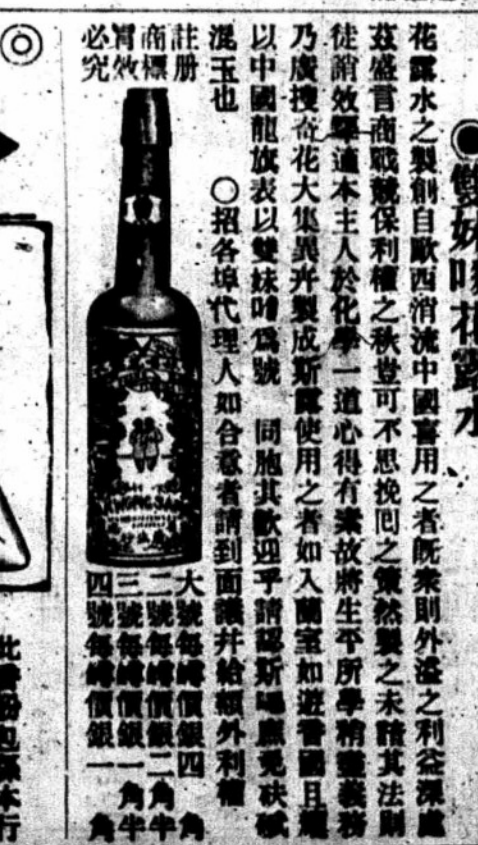 雙妹嘜花露水
花露水之製創自歐西消流中國喜用之者既衆則外溢之利益深處
茲盛言商戰競保利權之秋豈可不思挽囘之策然製之未諳其法則
徒誚效顰適本主人於化學一道心得有素故將生平所學精靈義務
乃廣搜奇花大集異卉製成斯露使用之者如入蘭室如遊香國且
以中國龍旗表以雙妹嘜爲號 同胞其歡迎乎請認斯嘜庶免砆碔
混玉也 〇招各埠代理人如合意者請到面議并給額外利權
註册
商標
冐效
必究
KWONG SANG
大號每罇價銀四角
二號每罇價銀二角半
三號每罇價銀一角半
四號每罇價銀一角